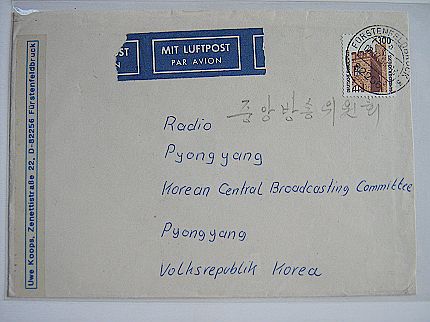 MIT LUFTPOST
PAR AVION
FÜRSTENFELDBRUCK
100
Uwe Koops, Zenettistraße 22, D-82256 Fürstenfeldbruck
중앙방송위원회
Radio
Pyongyang
Korean Central Broadcasting Committee
Pyongyang
Volksrepublik Korea